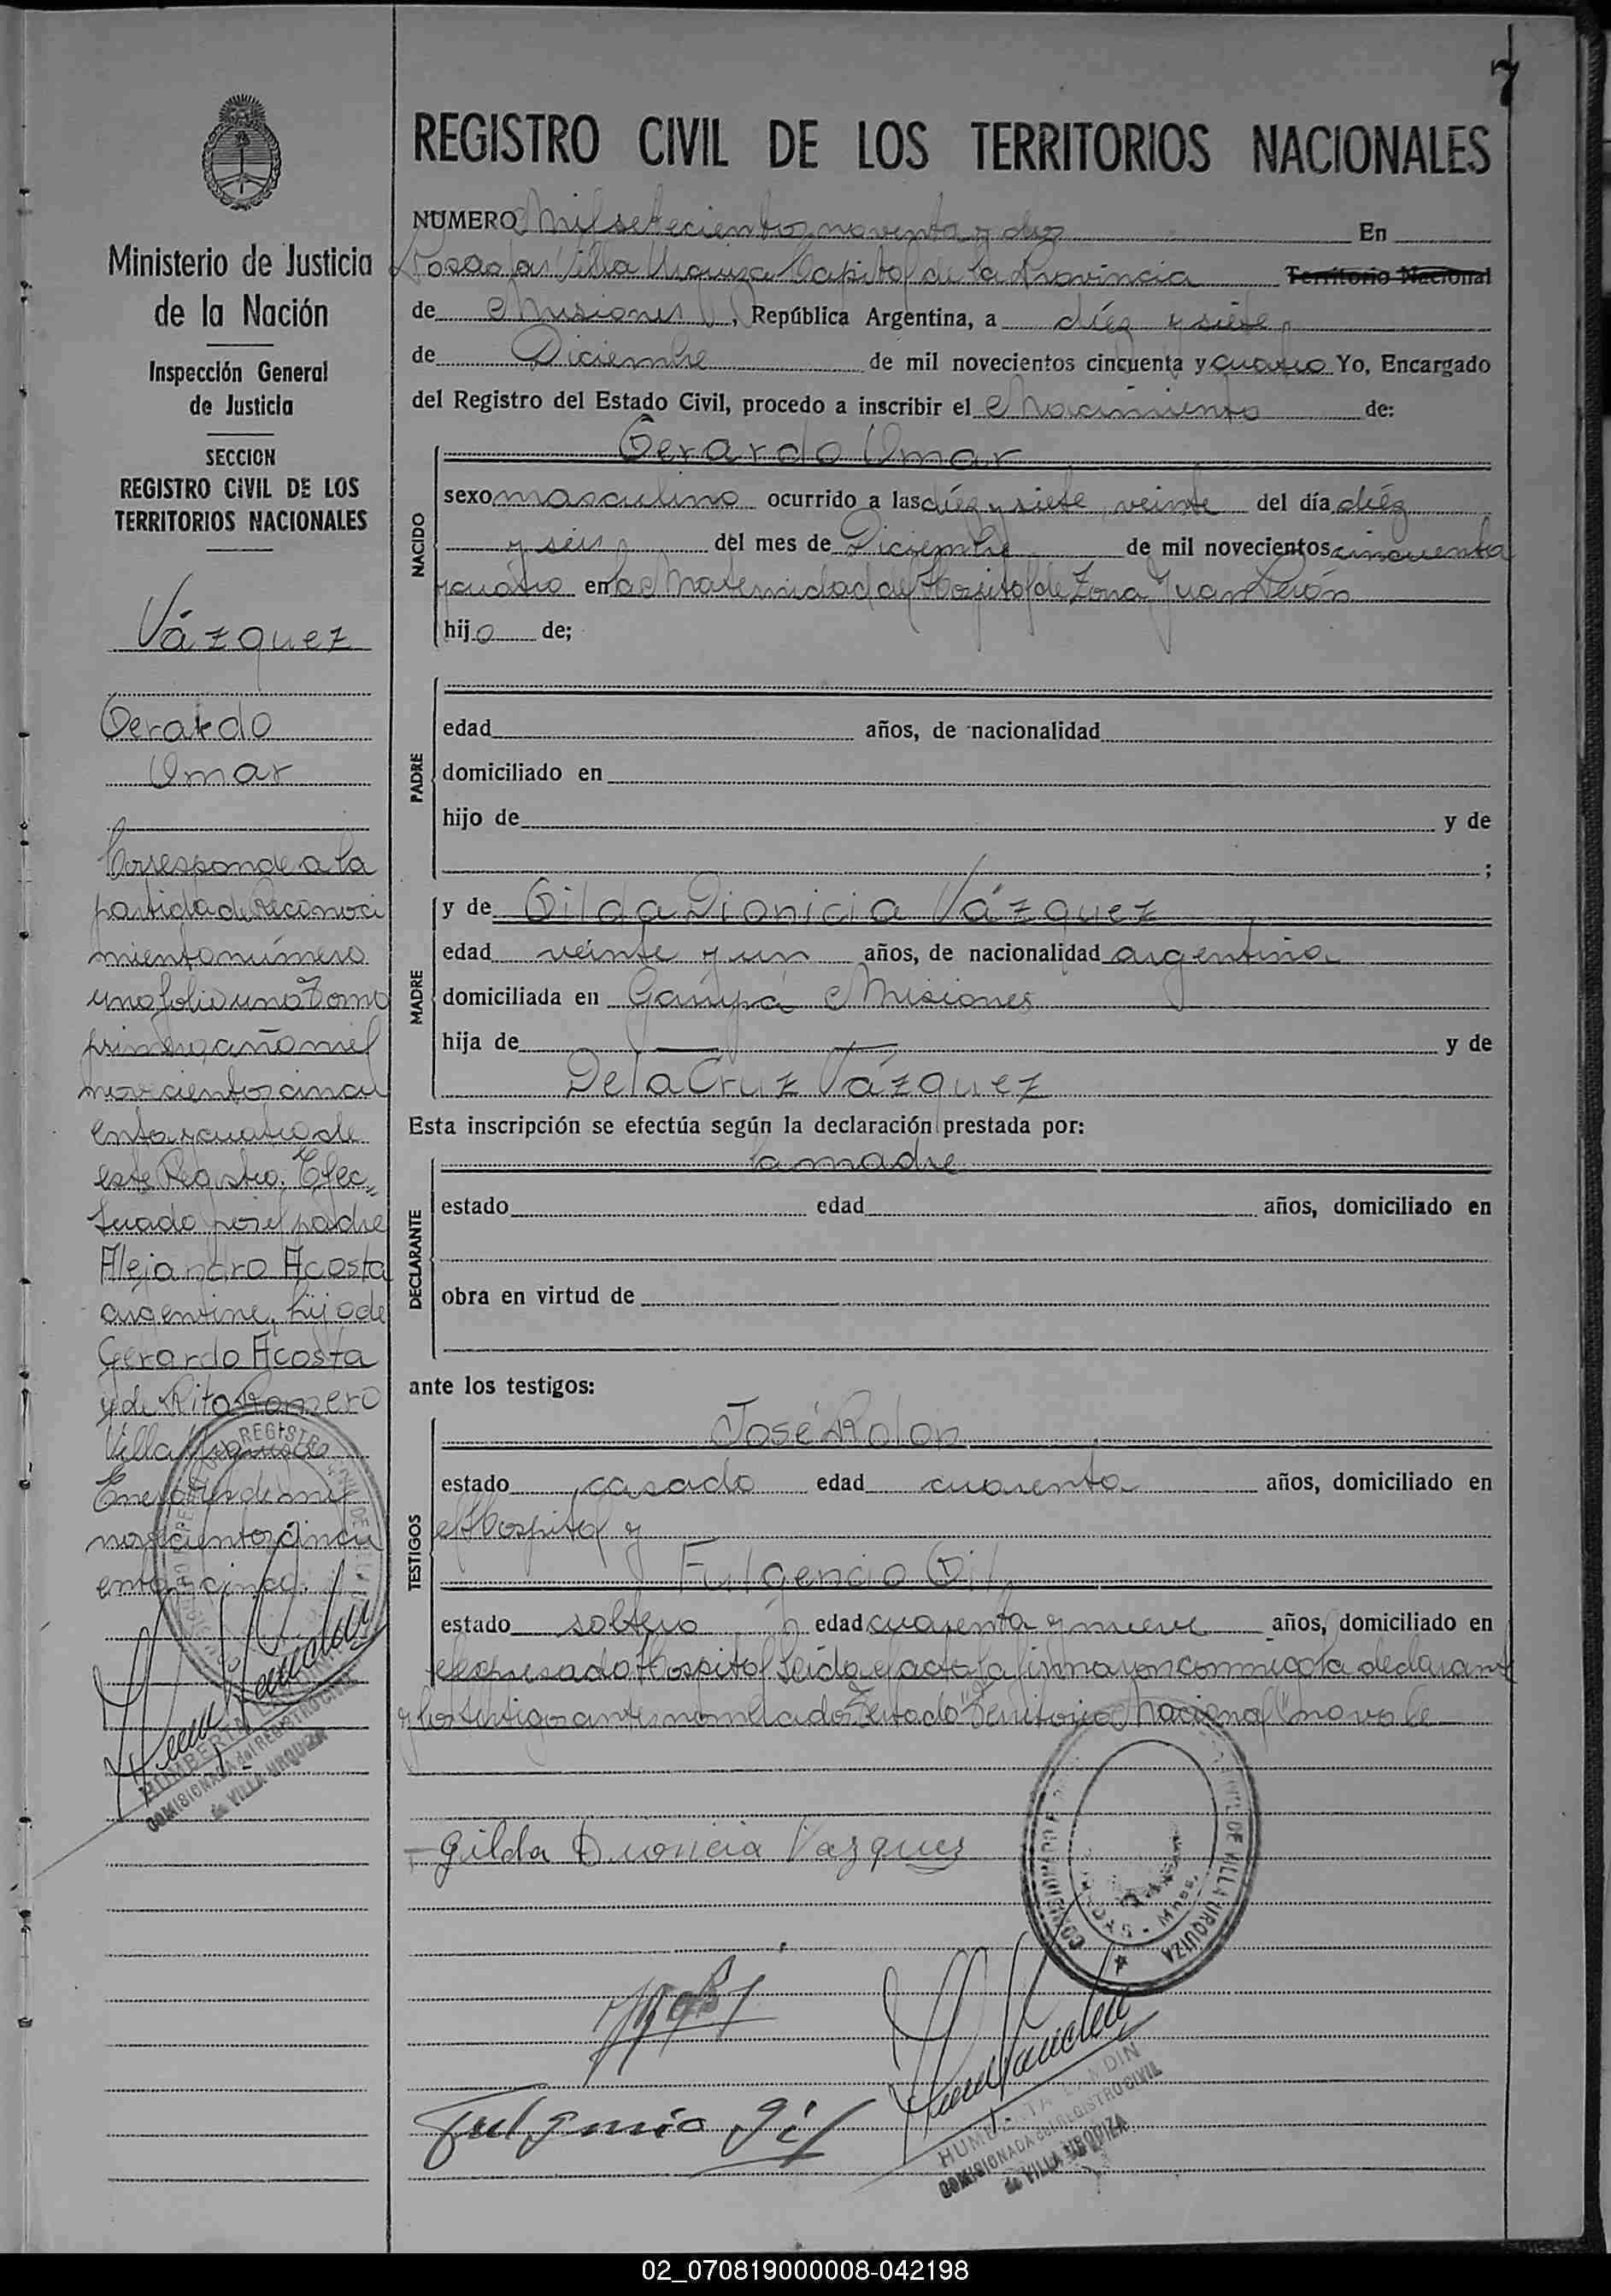 7
REGISTRO CIVIL DE LOS TERRITORIOS NACIONALES
Ministerio de Justicia
de la Nación
Inspección General
de Justicia
SECCION
REGISTRO CIVIL DE LOS
TERRITORIOS NACIONALES
Vázquez
Gerardo
Omar
Corresponde a la
partida de Reconoci
miento número
uno folio uno Tomo
primero, año mil
novecientos cincu
enta y cuatro de
este Registro. Efec„
tuado por el padre
Alejandro Acosta
argentino, hijo de
Gerardo Acosta
y de Rita Romero
Villa Urquiza
Enero de mil
novecientos cincu
enta y cinco.
HUMBERTA LANDIN
COMISIONADA del REGISTRO CIVIL
de VILLA URQUIZA
NUMERO Mil setecientos noventa y En
Posadas Villa Urquiza Capital de la Provincia Territorio Nacional
de Misiones, República Argentina, a diez y siete
de Diciembre de mil novecientos cincuenta y cuatro Yo, Encargado
del Registro del Estado Civil, procedo a inscribir el Nacimiento de:
NACIDO
Gerardo Omar
sexo masculino ocurrido a las diez y siete veinte del día diéz
y seis del mes de Diciembre de mil novecientos cincuenta
y cuatro en la Maternidad del Hospital de Zona Juan Perón
hijo de;
PADRE
edad años, de nacionalidad
domiciliado en
hijo de y de
;
MADRE
y de Gilda Dionicia Vázquez
edad veinte y un años, de nacionalidad argentina
domiciliada en Garupá Misiones
hija de y de
De la Cruz Vázquez
Esta inscripción se efectúa según la declaración prestada por:
DECLARANTE
la madre
estado edad años, domiciliado en
obra en virtud de
ante los testigos:
TESTIGOS
José Rolon
estado casado edad cuarenta años, domiciliado en
el Hospital y
Fulgencio Gil
estado soltero edad cuarenta y nueve años, domiciliado en
el expresado Hospital Leida el acta la firmaron conmigo la declarante
y los testigos antes nombrados Testado "Territorio Nacional" no vale
Gilda Dionicia Vazquez
Fulgencio Gil
VILLA URQUIZA
HUMBERTA LANDIN
COMISIONADA del REGISTRO CIVIL
de VILLA URQUIZA
02_070819000008-042198